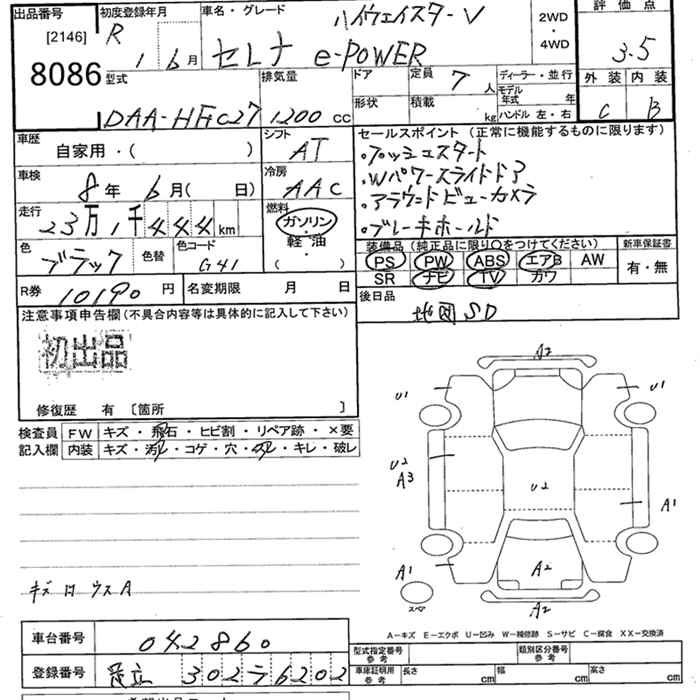 出品番号 初度登録年月 車名・グレード ハイウェイスターV 2WD・4WD 評価点
[2146] R 1 6月 セレナ e-POWER 3.5
8086 型式 排気量 ドア 定員 7人 ディーラー・並行 外装 内装
形状 積載 kg モデル年式 年 C B
DAA-HFC27 1200cc ハンドル 左・右
車歴 自家用・( ) シフト AT セールスポイント (正常に機能するものに限ります)
・プッシュスタート
車検 8年 6月( 日) 冷房 AAC ・Wパワースライドドア
・アラウンドビューカメラ
走行 23万1千444km 燃料 ガソリン・軽油 ( ) ・ブレーキホールド
色 ブラック 色替 色コード G41 装備品 (純正品に限り○をつけてください) 新車保証書
PS PW ABS エアB AW 有・無
SR ナビ TV カワ
R券 10190円 名変期限 月 日 後日品 地図SD
注意事項申告欄(不具合内容等は具体的に記入して下さい)
初出品
修復歴 有 〔箇所 〕
検査員 FW キズ・飛石・ヒビ割・リペア跡・×要
記入欄 内装 キズ・汚レ・コゲ・穴・・キレ・破レ
A2
U1 U1
U2
A3 U2 A1
A1 A2
スペア A2
A-キズ E-エクボ U-凹み W-補修跡 S-サビ C-腐食 XX-交換済
車台番号 042860
登録番号 足立 302 6202
型式指定番号 参考 類別区分番号 参考
車庫証明用 参考 長さ cm 幅 cm 高さ cm